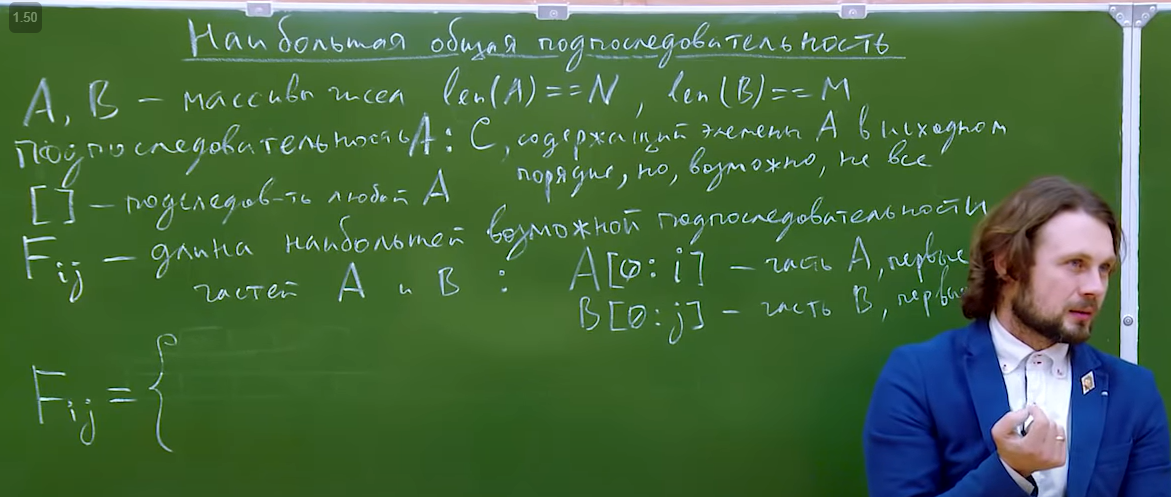 1.50
Наибольшая общая подпоследовательность
A, B – массивы чисел len(A)==N, len(B)==M
Подпоследовательность A: C, содержащий элементы A в исходном
порядке, но, возможно, не все
[] – подследов-ть любой A
Fij – длина наибольшей возможной подпоследовательности
частей A и B : A[0:i] – часть A, первые
B[0:j] – часть B, первы
Fij = {